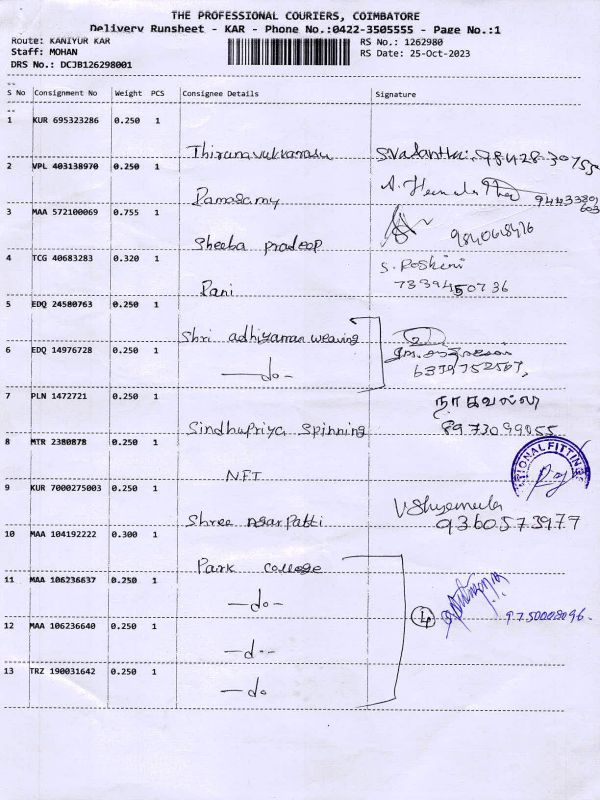 THE PROFESSIONAL COURIERS, COIMBATORE
Delivery Runsheet - KAR - Phone No.:0422-3505555 - Page No.:1
Route: KANIYUR KAR
RS No.: 1262980
Staff: MOHAN
RS Date: 25-Oct-2023
DRS No.: DCJB126298001
S No Consignment No Weight PCS Consignee Details Signature
1 KUR 695323286 0.250 1
Thirunavukkarasu S.Vasantha. 98428-30755
2 VPL 403138970 0.250 1
Ramasamy A. Hemalatha
3 MAA 572100069 0.755 1
Sheeba pradeep
4 TCG 40683283 0.320 1
Rani S. Roshini
7339450736
5 EDQ 24580763 0.250 1
Shri adhiyaman weaving
6 EDQ 14976728 0.250 1
-do-
7 PLN 1472721 0.250 1
Sindhupriya Spinning நாகவல்லி
8973099055
8 MTR 2380878 0.250 1
NFT NATIONAL FITTING
9 KUR 7000275003 0.250 1
Shree Agar Patti V Shyamala
9360573977
10 MAA 104192222 0.300 1
Park College
11 MAA 106236637 0.250 1
-do-
4 9750008096.
12 MAA 106236640 0.250 1
-do-
13 TRZ 190031642 0.250 1
-do